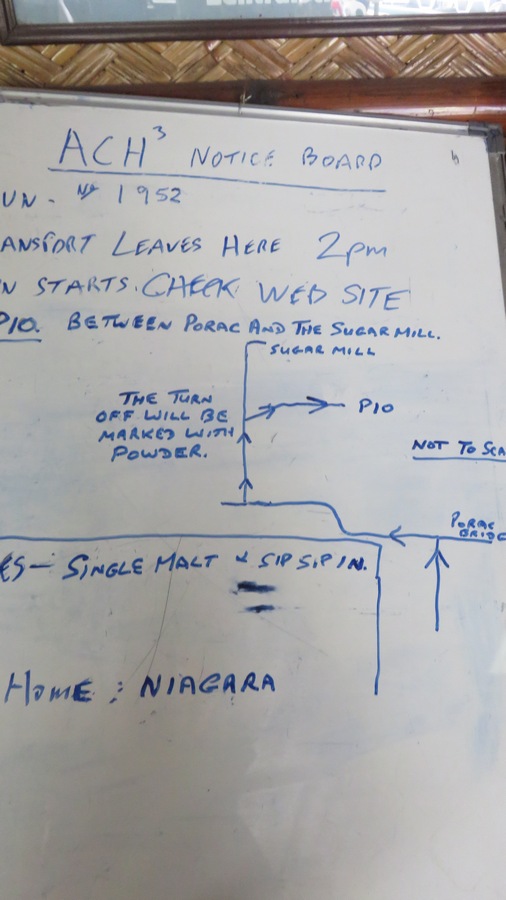 ACH³ NOTICE BOARD
UN. Nº 1952
ANSPORT LEAVES HERE 2pm
N STARTS. CHECK WEB SITE
PIO. BETWEEN PORAC AND THE SUGAR MILL.
SUGAR MILL
THE TURN
OFF WILL BE
MARKED WITH
POWDER.
PIO
NOT TO SCA
PORAC
BRIDG
ES - SINGLE MALT & SIP SIP IN.
HOME : NIAGARA